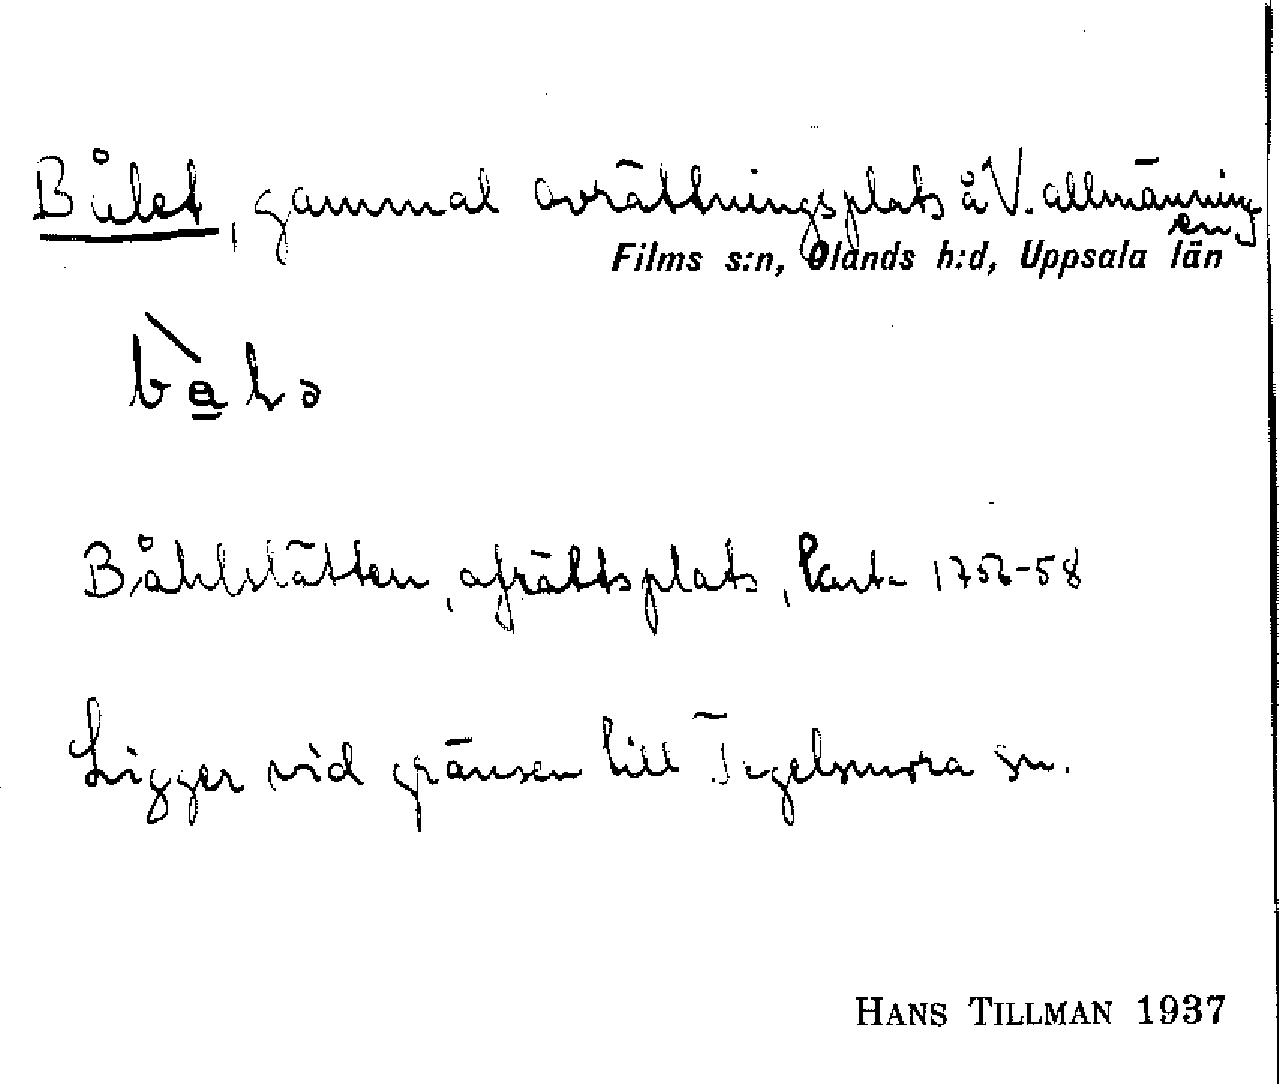 Bålet, gammal avrättningsplats å V. allmänningen
Films s:n, Olands h:d, Uppsala län
Båhlstätten, afrättsplats, karta 1756-58
Ligger vid gränsen till Tegelsmora sn.
HANS TILLMAN 1937